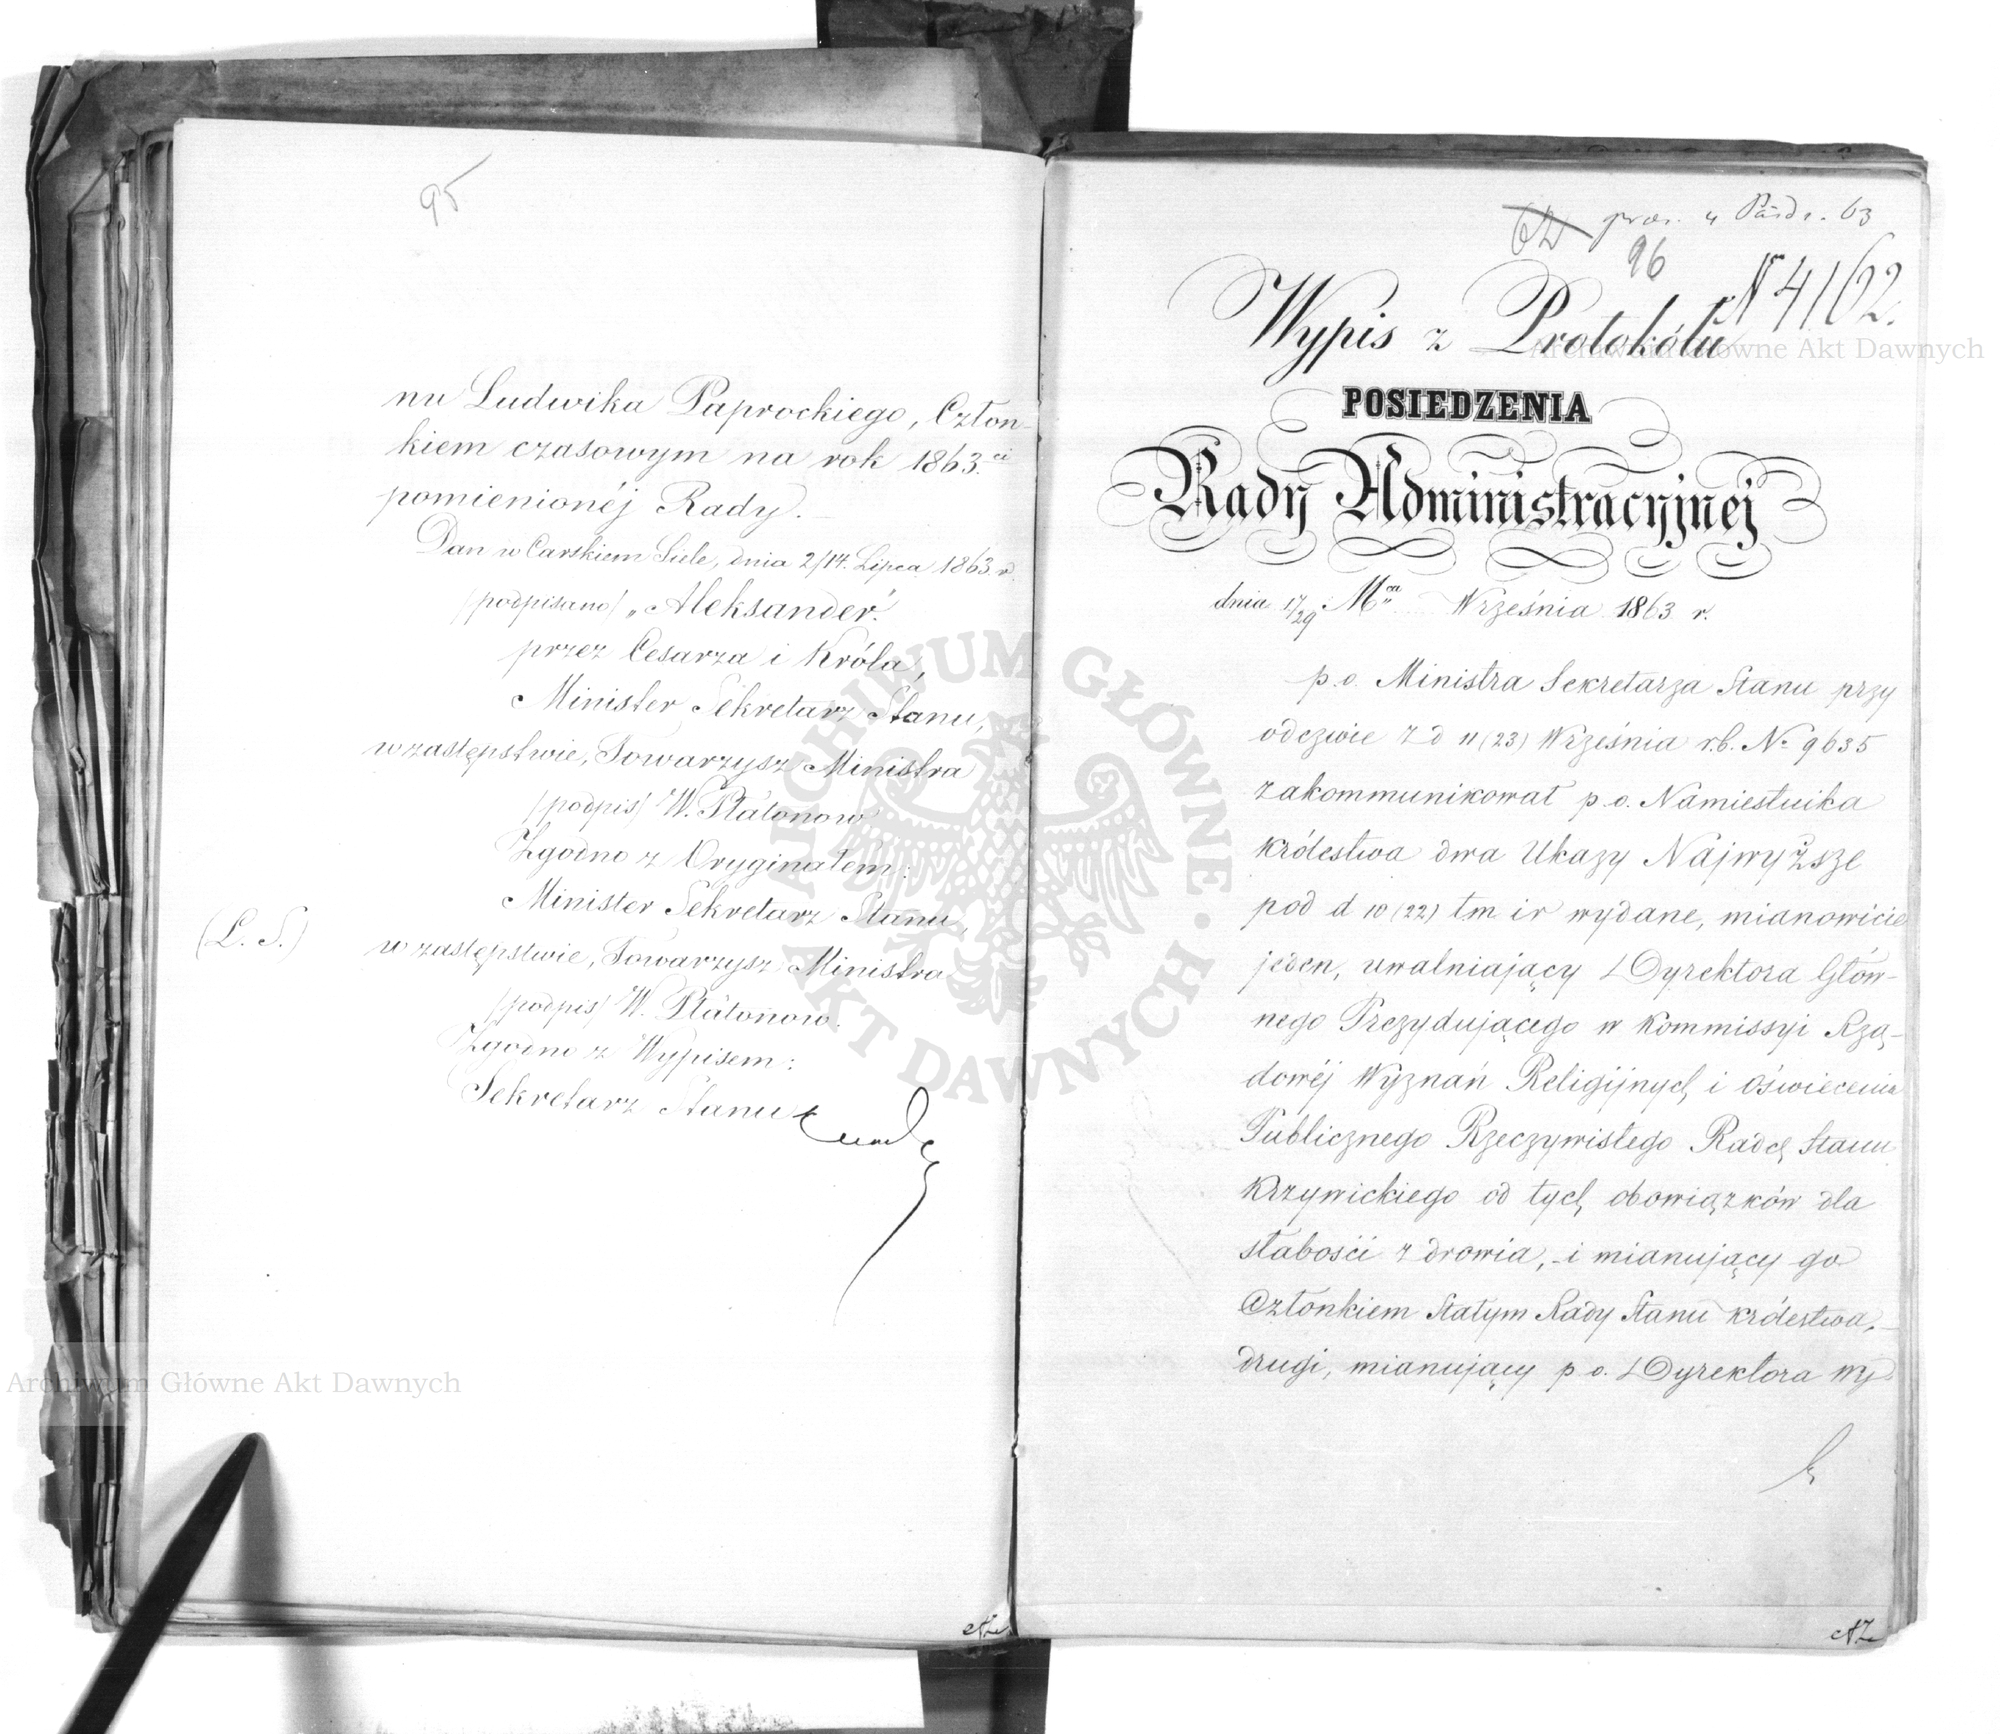 95
nu Ludwika Paprockiego, Człon-
kiem czasowym na rok 1863.ci
pomienionéj Rady. —
Dan w Carskiem Siele, dnia 2/14. Lipca 1863 r.
/podpisano/ „Aleksander".
przez Cesarza i Króla,
Minister Sekretarz Stanu,
w zastępstwie, Towarzysz Ministra
/podpis/ W. Płatonow
Zgodno z Oryginałem:
Minister Sekretarz Stanu,
(L. S.) w zastępstwie, Towarzysz Ministra
/podpis/ W. Płatonow.
Zgodno z Wypisem:
Sekretarz Stanu
62 prae. 4 Paźdz. 63
96
N 4162.
Wypis z Protokółu
POSIEDZENIA
Rady Administracyjnéj
dnia 17/29 Mca Września 1863 r.
p.o. Ministra Sekretarza Stanu przy
odezwie z d 11 (23) Września r.b. No 9635
zakommunikował p.o. Namiestnika
Królestwa dwa Ukazy Najwyższe
pod d 10 (22) t m i r wydane, mianowicie
jeden, uwalniający Dyrektora Głów-
nego Prezydującego w Kommissyi Rzą-
dowéj Wyznań Religijnych i Oświecenia
Publicznego Rzeczywistego Radcę Stanu
Krzywickiego od tych obowiązków dla
słabości zdrowia, - i mianujący go
Członkiem Stałym Rady Stanu Królestwa, -
drugi, mianujący p o. Dyrektora Wy-
AZ
AZ
ARCHIWUM GŁÓWNE AKT DAWNYCH
Archiwum Główne Akt Dawnych
Archiwum Główne Akt Dawnych